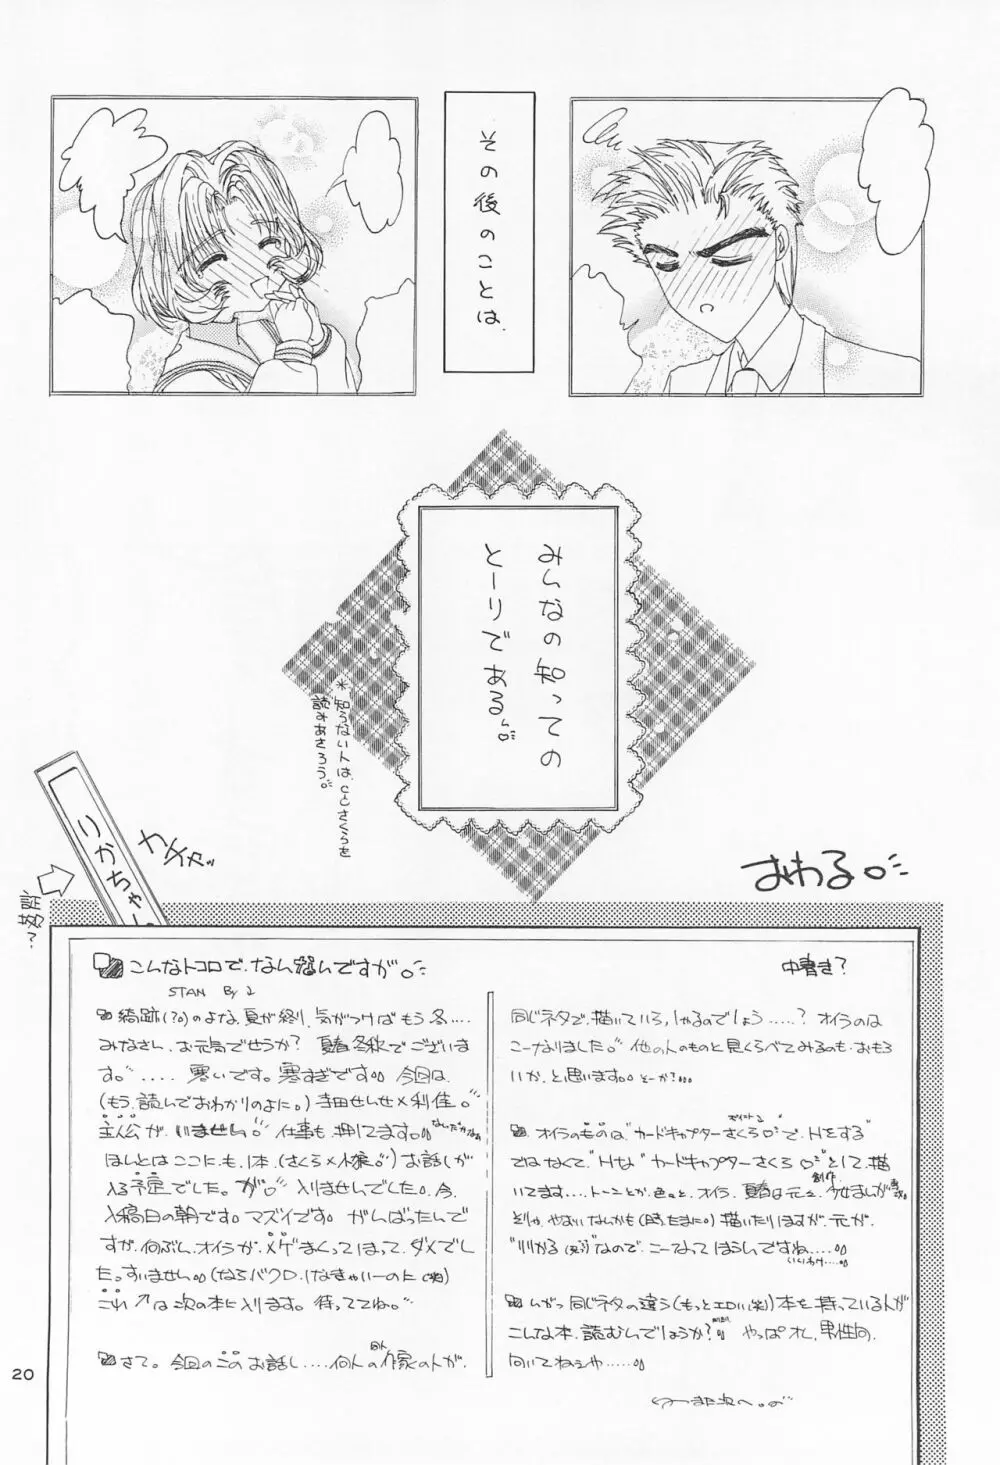 その後のことは、
みんなの知っての
とーりである。
*知らない人は、CCさくらを
読みあさろう。
おわる。
カチャッ
りかちゃん
こんなトコロで、なんなんですが。
STAN By 2
中書き?
みなさん、お元気でせうか? 夏春冬秋でございま
す。.....寒いです。寒すぎです 今回は、
(もう、読んでおわかりのよに。)寺田せんせ×利佳。
主人公が、いません。仕事も、押してます。
ほんとはここにも、1本、(さくら×小狼。)お話しが
入る予定でした。が。入りませんでした。今、
入稿日の朝です。マズイです。がんばったんで
すが、何ぶん、オイラが、メゲまくってほって、ダメでし
た。すいません。
これ↗は次の本に入ります。待っててね。
さて。今回のこのお話し....何人の作家の人が、
同じネタで、描いていらっしゃるのでしょう.....? オイラのは
こーなりました。他の人のものと見くらべてみるのも、おもろ
いか、と思います。とーか?...
オイラのものは"カードキャプターさくら"で、Hをする"
ではなくて、"Hな"カードキャプターさくら"として、描
いてます....トーンとか、色々と、オイラ、夏春は元々、少女まんが
描いたりしますが、元が、
なので、こーなってほうんですね.....
いいわけ....
同じネタの違う(もっとエロい(笑))本を持っている人が
こんな本、読むんでしょうか? やっぱオレ、男性向、
向いてねぇや.....
20